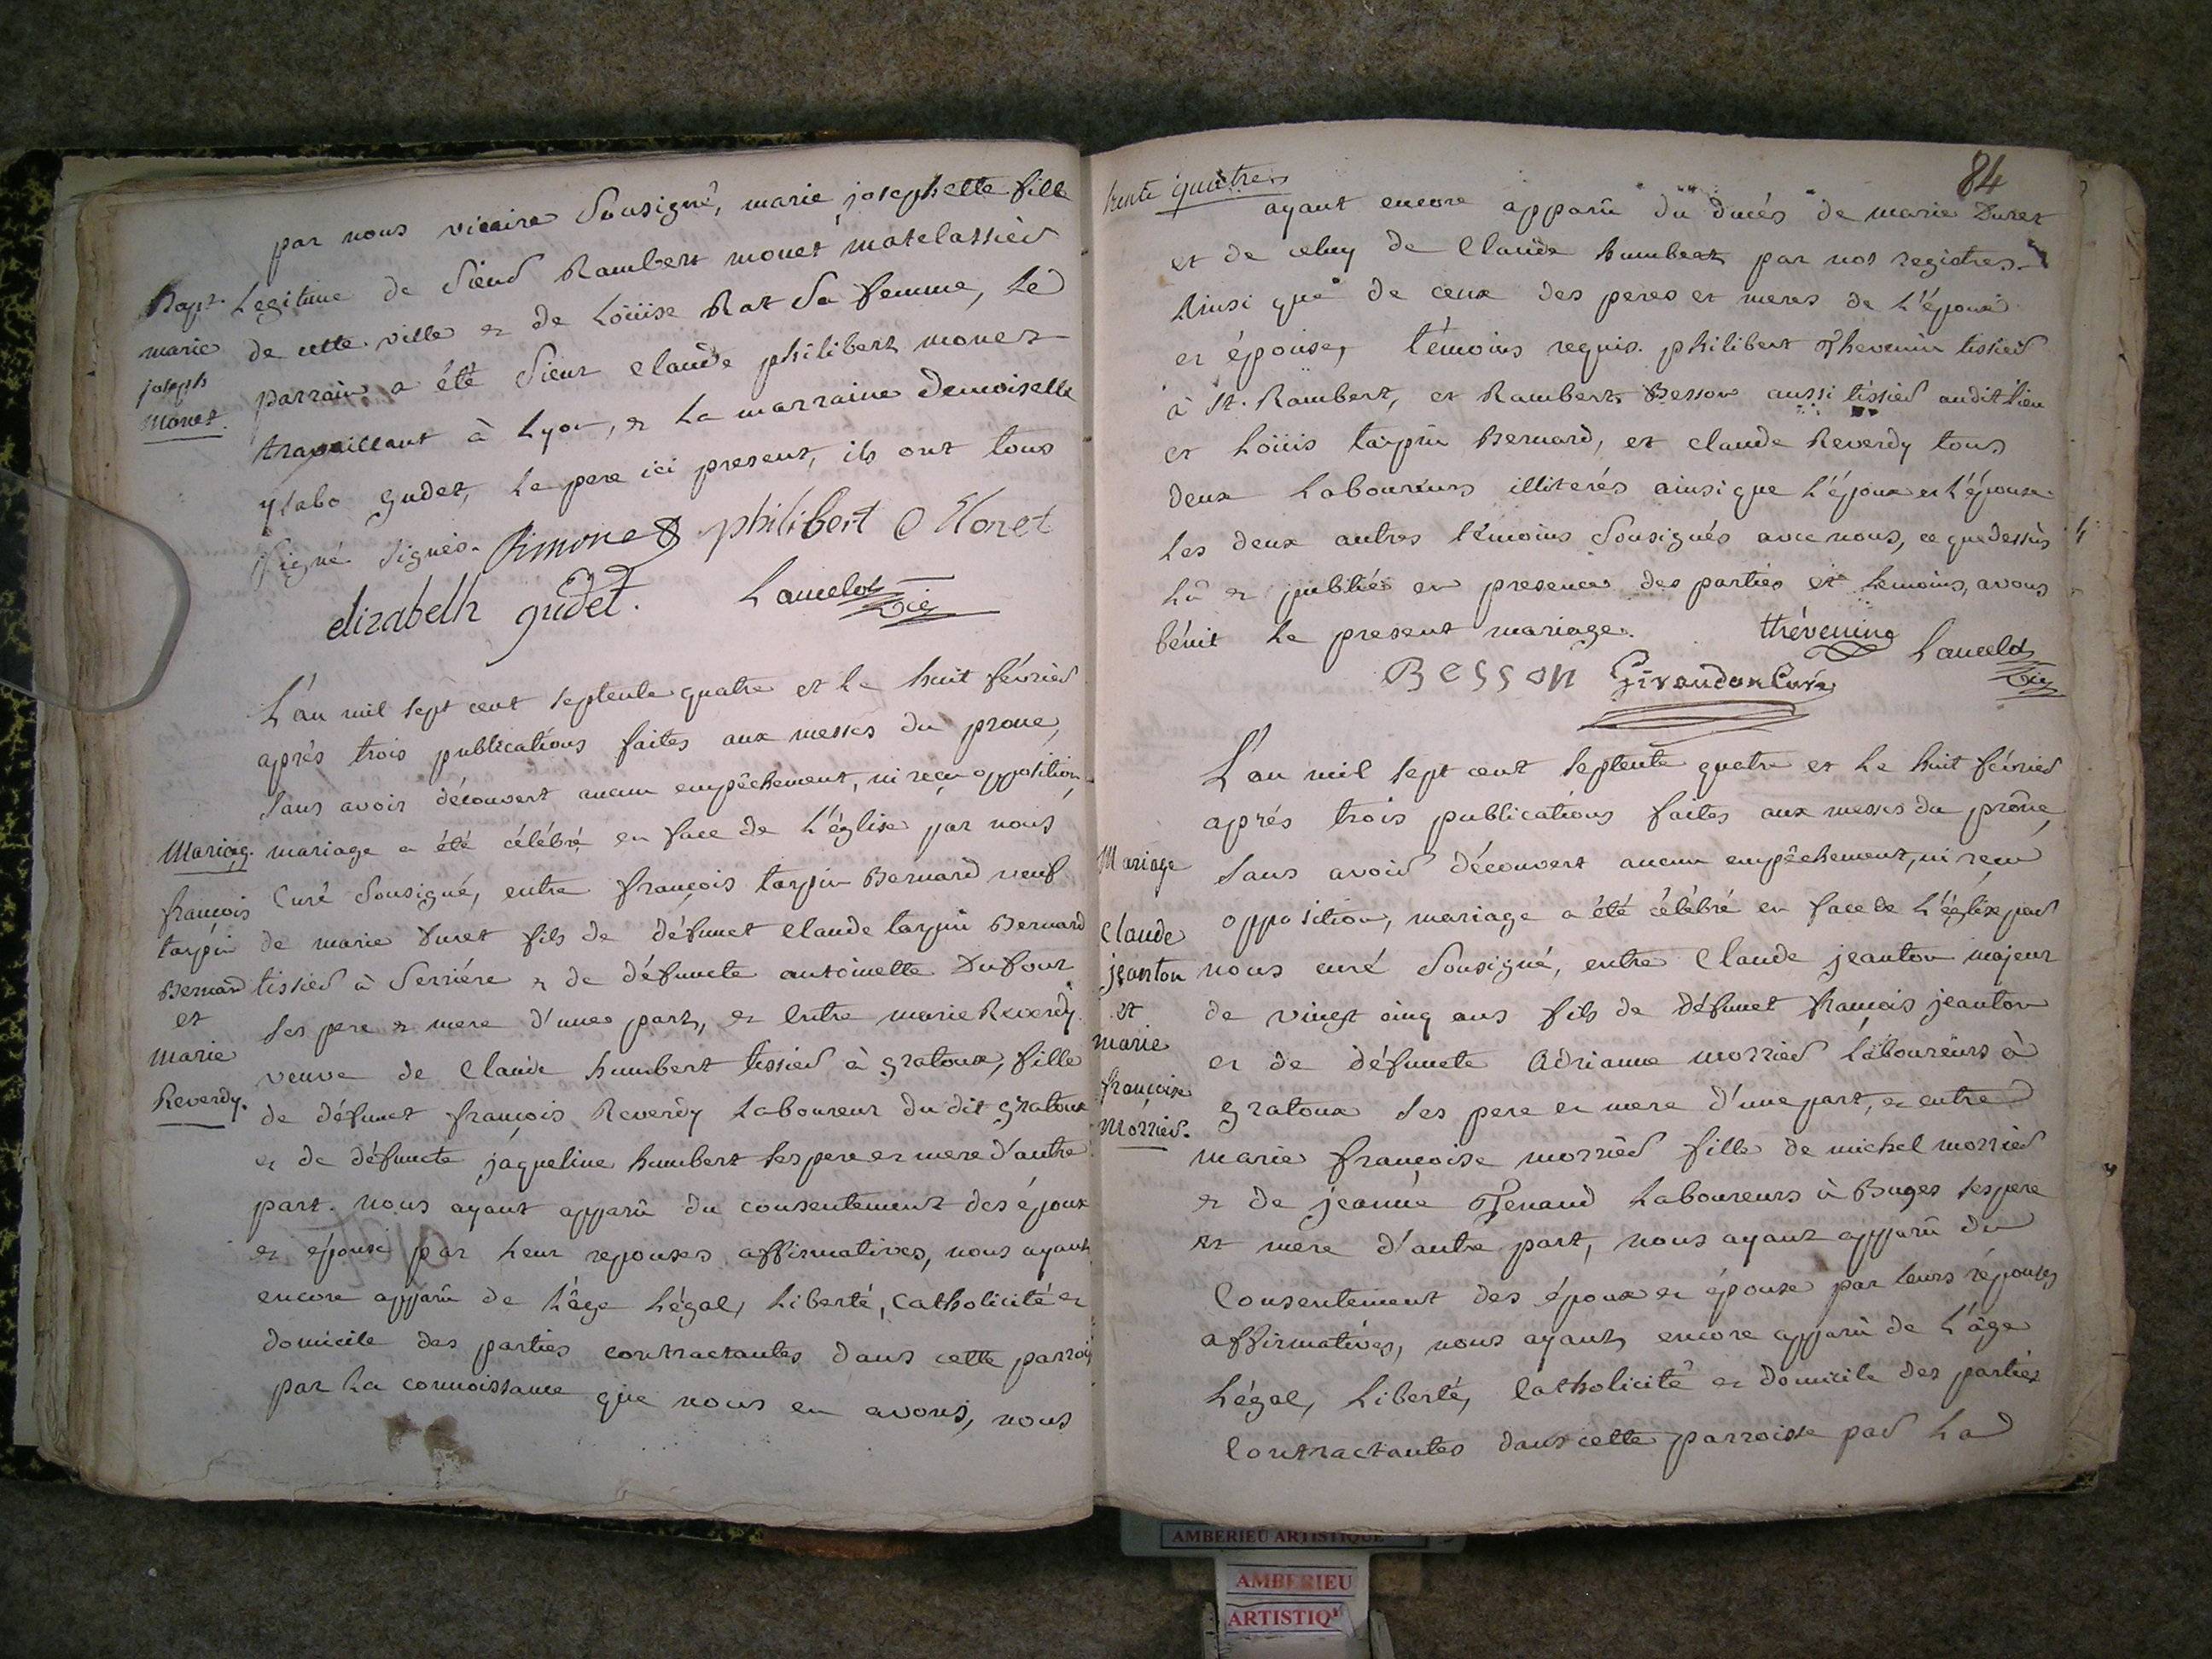 par nous vicaire Sousigné, marie josephette fille
Bapt.
marie
joseph
Monet.
Legitime de Sieur Rambert monet matelassier
de cette ville et de Loüise Rat Sa femme, Le
parrain a été Sieur claude philibert monet
travaillant à Lyon, et La marraine Demoiselle
gudet, Le pere ici present, ils ont tous
Signé Signés. Rimonet philibert Monet
elizabeth gudet. Lancelot vic
L'an mil sept cent septente quatre et Le huit février
après trois publications faites aux messes du prone,
Sans avoir découvert aucun empêchement, ni reçu opposition,
Mariag.
françois
tarpin
Bernard
et
marie
Reverdy.
mariage a été célébré en face de L'église par nous
Curé Sousigné, entre françois tarpin Bernard veuf
de marie Duret fils de défunct Claude tarpin Bernard
tissier à Serriére et de défuncte antoinette Dufour
Ses pere et mere d'une part, et Entre marie Reverdy
veuve de Claude humbert tissier à gratoux, fille
de défunct françois Reverdy Laboureur du dit gratoux
et de défuncte jaqueline humbert ses pere et mere d'autre
part. nous ayant apparû du consentement des époux
et épouse par Leur reponses affirmatives, nous ayant
encore apparû de L'âge Légal, Liberté, Catholicité et
domicile des parties contractantes dans cette parroi
par La connoissance que nous en avons, nous
trente quatre
84
ayant encore apparû du decés de marie Duret
et de celuy de Claude humbert par nos registres
Ainsi que de ceux des peres et meres de L'époux
et épouse, témoins requis. philibert Thevenin tissier
à St. Rambert, et Rambert Besson aussi tissier audit lieu
et Loüis tarpin Bernard, et claude Reverdy tous
deux Laboureurs illiterés ainsi que L'époux et L'épouse
Les deux autres témoins Sousignés avec nous, ce que dessus
Lû et publié en presence des parties et temoins, avons
bénit Le present mariage. thévenin Lancelot
Besson Giraudon Curé vic
L'an mil sept cent septente quatre et Le huit février
aprés trois publications faites aux messes du prône,
Mariage
Claude
jeanton
et
marie
françoise
Morrier.
Sans avoir découvert aucun empêchement, ni reçu
opposition, mariage a été célébré en face de L'église par
nous curé Sousigné, entre Claude jeanton majeur
de vingt cinq ans fils de défunct francois jeanton
et de défuncte Adrianne morrier Laboureurs à
gratoux Ses pere et mere d'une part, et entre
marie françoise morrier fille de michel morrier
et de jeanne Renaud Laboureurs à Buges ses pere
et mere d'autre part, nous ayant apparû du
Consentement des époux et épouse par leurs réponses
affirmatives, nous ayant encore apparû de L'âge
Légal, Liberté, Catholicité et domicile des parties
Contractantes dans cette parroisse par La
AMBERIEU ARTISTIQUE
AMBERIEU
ARTISTIQ